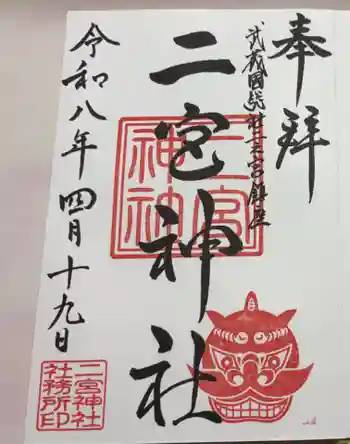 奉拝
武蔵國総社二之宮鎮座
二宮神社
二宮神社
令和八年四月十九日
二宮神社
社務所印